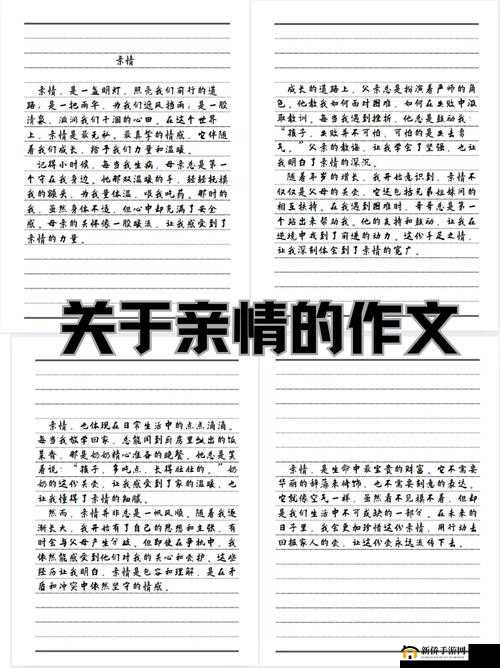 亲情
亲情，是一盏明灯，照亮我们前行的道
路；是一把雨伞，为我们遮风挡雨；是一股
清泉，滋润我们干涸的心田。在这个世界
上，亲情是最无私、最真挚的情感，它伴随
着我们成长，给予我们力量和温暖。
记得小时候，每当我生病，母亲总是第一
个守在我身边。她那双温暖的手，轻轻抚摸
我的额头，为我量体温，喂我吃药。那时的
我，虽然身体不适，但心中却充满了安全
感。母亲的关怀像一股暖流，让我感受到了
亲情的力量。
成长的道路上，父亲总是扮演着严师的角
色。他教我如何面对困难，如何在失败中汲
取教训。每当我遇到挫折，他总是鼓励我：
“孩子，失败并不可怕，可怕的是失去勇
气。”父亲的教诲，让我学会了坚强，也让
我明白了亲情的深沉。
随着年岁的增长，我开始意识到，亲情不
仅仅是父母的关爱，它还包括兄弟姐妹间的
相互扶持。在我遇到困难时，哥哥总是第一
个站出来帮助我。他的支持和鼓励，让我在
逆境中找到了前进的动力。这份手足之情，
让我深刻体会到了亲情的宽广。
关于亲情的作文
亲情，也体现在日常生活中的点点滴滴。
每当我放学回家，总能闻到厨房里飘出的饭
菜香，那是奶奶精心准备的晚餐。她总是笑
着说：“孩子，多吃点，长得壮壮的。”奶
奶的这份关爱，让我感受到了家的温暖，也
让我懂得了亲情的细腻。
然而，亲情并非总是一帆风顺。随着我逐
渐长大，我开始有了自己的思想和主张，有
时会与父母产生分歧。但即使在争执中，我
依然能感受到他们对我的关心和爱护。这些
经历让我明白，亲情是包容和理解，是在矛
盾和冲突中依然坚守的情感。
亲情，是生命中最宝贵的财富。它不需要
华丽的辞藻来修饰，也不需要刻意的表达。
它就像空气一样，虽然看不见摸不着，但却
是我们生活中不可或缺的一部分。在未来的
日子里，我会更加珍惜这份亲情，用行动去
回报家人的爱，让这份爱永远流传下去。
新侨手游网